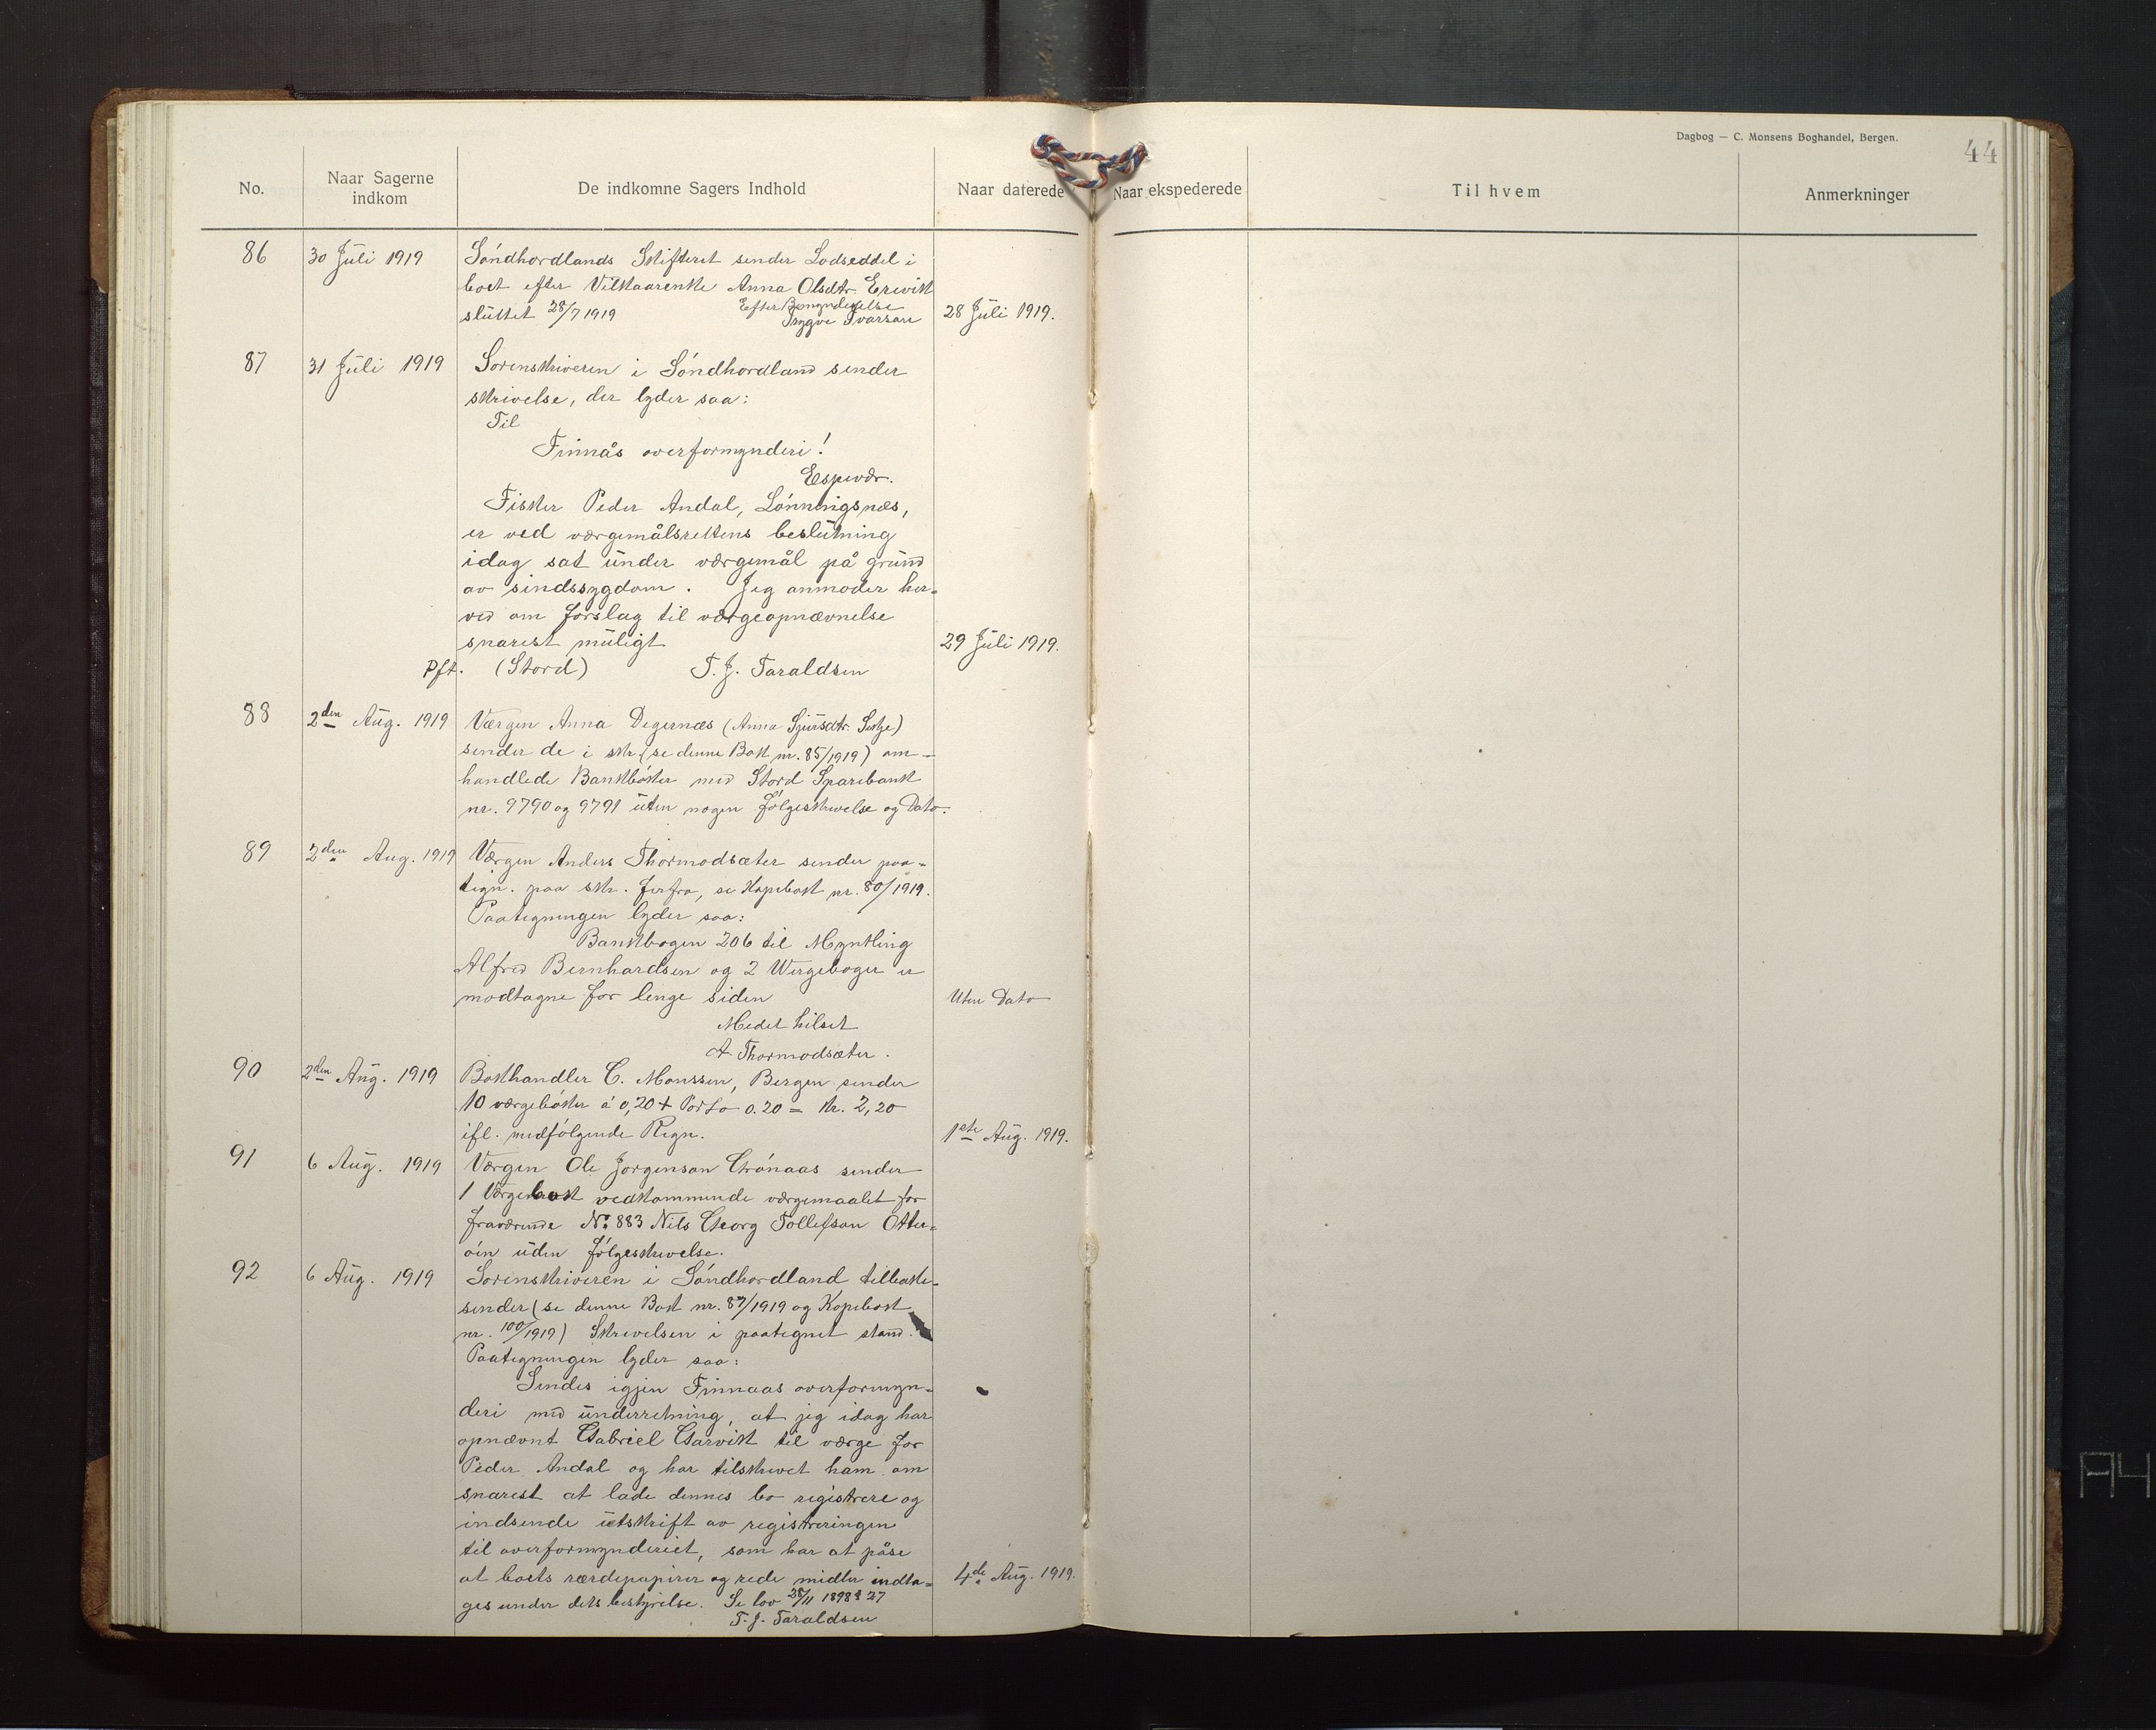 Dagbog — C. Monsens Boghandel, Bergen.
44
No.
Naar Sagerne indkom
De indkomne Sagers Indhold
Naar daterede
Naar ekspederede
Til hvem
Anmerkninger
86 30 Juli 1919 Søndhordlands Skifteret sender Lodseddel i
boet efter Vilkaarenke Anna Olsdtr. Ersvik
sluttet 28/7 1919 Efter Bemyndigelse
Trygve Ivarson 28 Juli 1919.
87 31 Juli 1919 Sorenskriveren i Søndhordland sender
skrivelse, der lyder saa:
Til
Finnås overformynderi!
Espevær.
Fisker Peder Andal, Lønningsnæs,
er ved værgemålsrettens beslutning
idag sat under værgemål på grund
av sindssygdom. Jeg anmoder her-
ved om forslag til værgeopnævnelse
snarest muligt 29 Juli 1919.
Pft. (Stord) T. J. Taraldsen
88 2den Aug. 1919 Værgen Anna Degernæs (Anna Sjursdtr.)
sender de i skr. (se denne Bok nr. 85/1919) om-
handlede Bankbøker med Stord Sparebank
nr. 9790 og 9791 uten nogen Følgeskrivelse og Dato.
89 2den Aug. 1919 Værgen Anders Thormodsæter sender paa-
tegn. paa skr. herfra, se Kopibok nr. 80/1919.
Paategningen lyder saa:
Bankbogen 206 til Myntling
Alfred Bernhardsen og 2 Wergebøger er
modtagne for lenge siden Uten Dato
Medet hilset
A Thormodsæter.
90 2den Aug. 1919 Bokhandler C. Monssen, Bergen sender
10 værgebøker á 0,20 + Porto 0.20 = Kr. 2,20
ifl. medfølgende Regn. 1ste Aug. 1919.
91 6 Aug. 1919 Værgen Ole Jørgenson Grønaas sender
1 Værgebok vedkommende værgemaalet for
fraværende No. 883 Nils Georg Tollefson Otter-
øin uden følgeskrivelse.
92 6 Aug. 1919 Sorenskriveren i Søndhordland tilbake-
sender (se denne Bok nr. 87/1919 og Kopibok
nr. 100/1919) Skrivelsen i paategnet stand.
Paategningen lyder saa:
Sendes igjen Finnaas overformyn-
deri med underretning, at jeg idag har
opnævnt Gabriel Garvik til værge for
Peder Andal og har tilskrevet ham om
snarest at lade dennes bo registrere og
indsende utskrift av registreringen
til overformynderiet, som har at påse
at boets værdepapirer og rede midler indta-
ges under dets bestyrelse. Se lov 28/11 1898 § 27 4de Aug. 1919.
T. J. Taraldsen